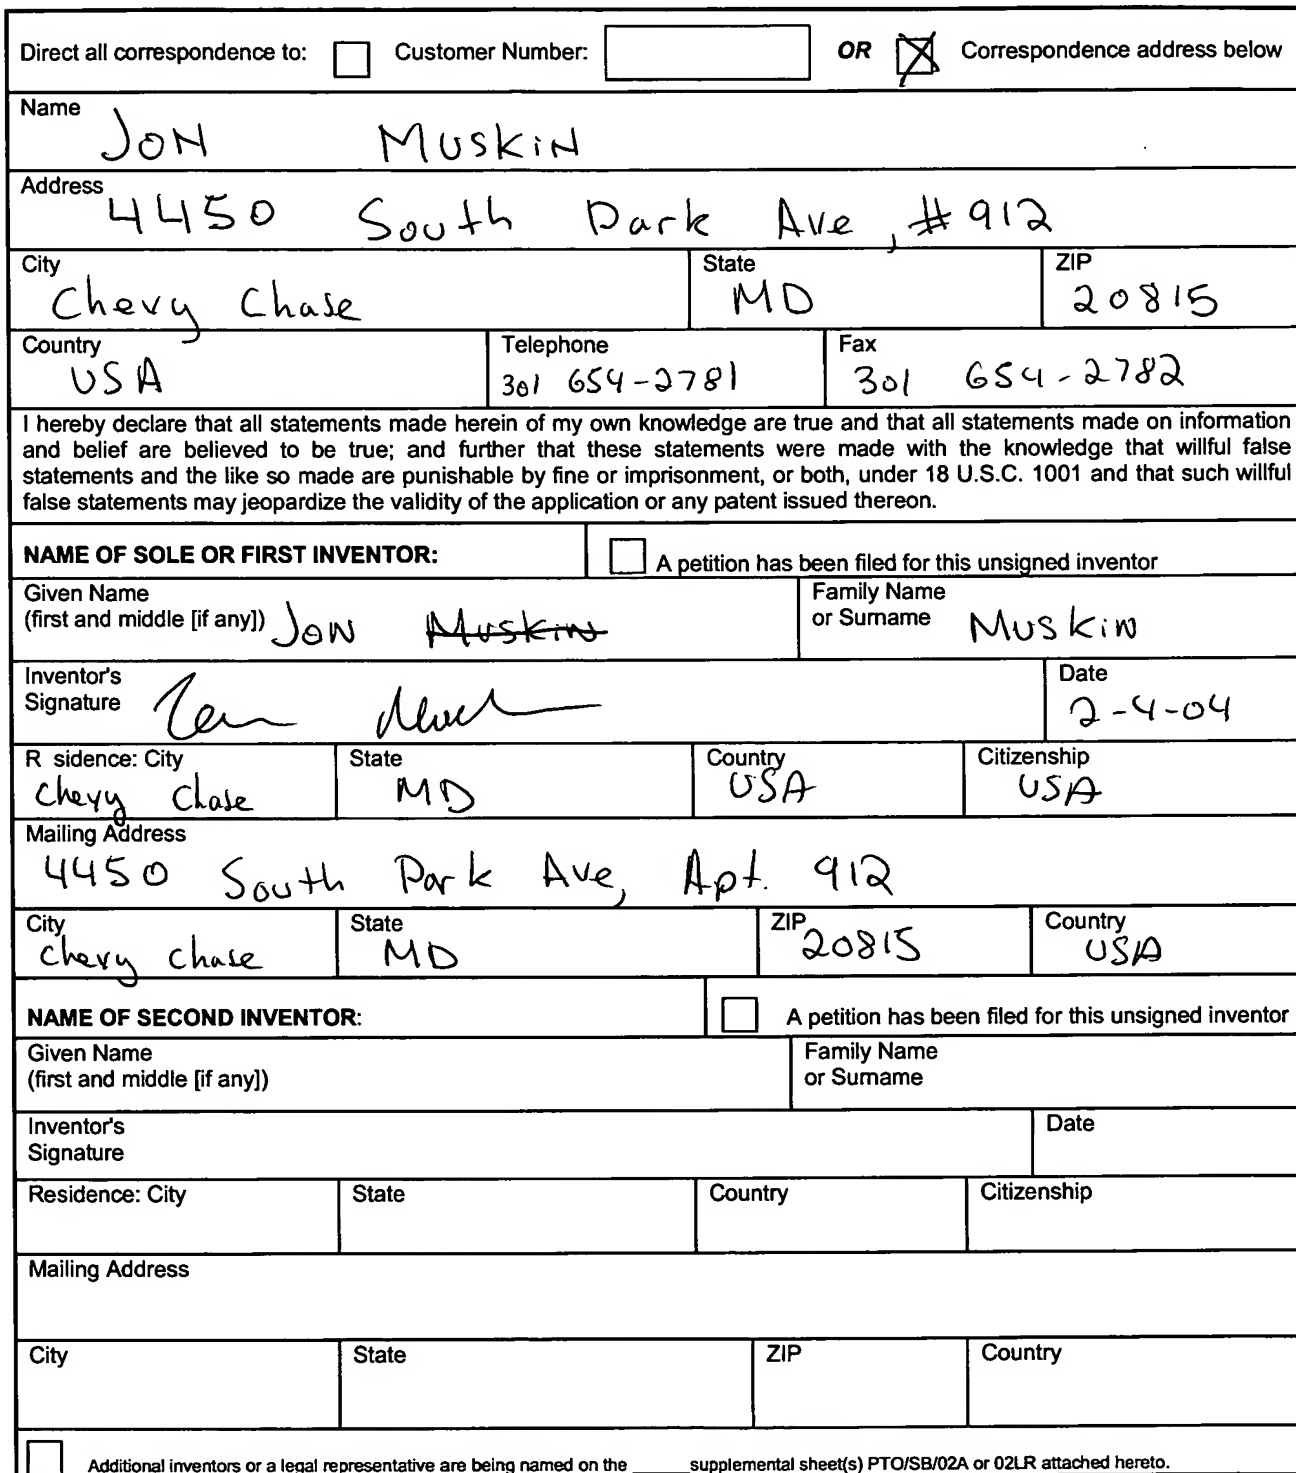 Direct all correspondence to: Customer Number: OR Correspondence address below
Name
JON MUSKIN
Address
4450 South Park Ave, #912
City State ZIP
Chevy Chase MD 20815
Country Telephone Fax
USA 301 654-2781 301 654-2782
I hereby declare that all statements made herein of my own knowledge are true and that all statements made on information
and belief are believed to be true; and further that these statements were made with the knowledge that willful false
statements and the like so made are punishable by fine or imprisonment, or both, under 18 U.S.C. 1001 and that such willful
false statements may jeopardize the validity of the application or any patent issued thereon.
NAME OF SOLE OR FIRST INVENTOR: A petition has been filed for this unsigned inventor
Given Name Family Name
(first and middle [if any]) Jon Muskin or Surname Muskin
Inventor's Date
Signature 2-4-04
R sidence: City State Country Citizenship
Chevy Chase MD USA USA
Mailing Address
4450 South Park Ave, Apt. 912
City State ZIP Country
Chevy Chase MD 20815 USA
NAME OF SECOND INVENTOR: A petition has been filed for this unsigned inventor
Given Name Family Name
(first and middle [if any]) or Surname
Inventor's Date
Signature
Residence: City State Country Citizenship
Mailing Address
City State ZIP Country
Additional inventors or a legal representative are being named on the ______ supplemental sheet(s) PTO/SB/02A or 02LR attached hereto.